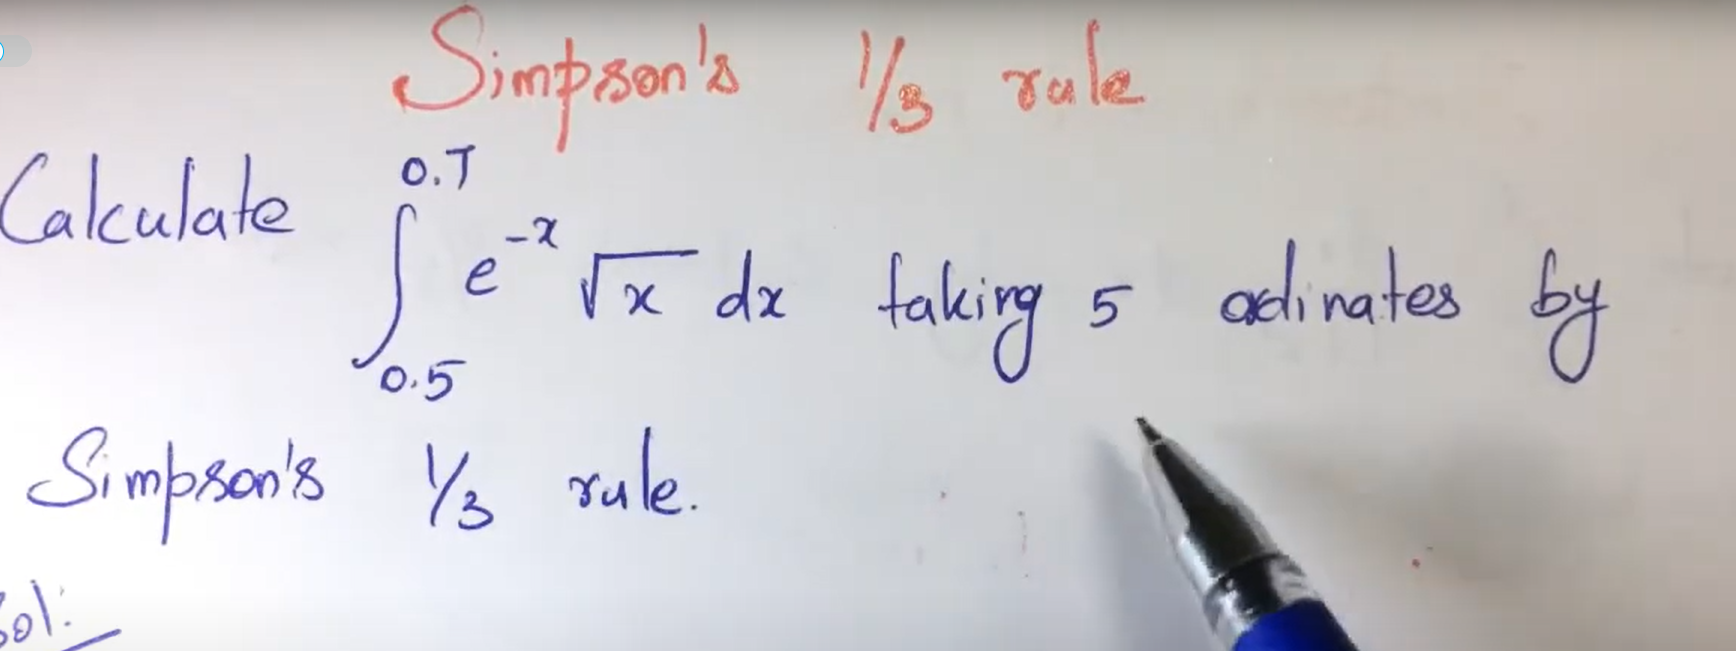 Simpson's 1/3 rule
Calculate ∫_{0.5}^{0.7} e^{-x} √x dx taking 5 odinates by
Simpson's 1/3 rule.
Sol: